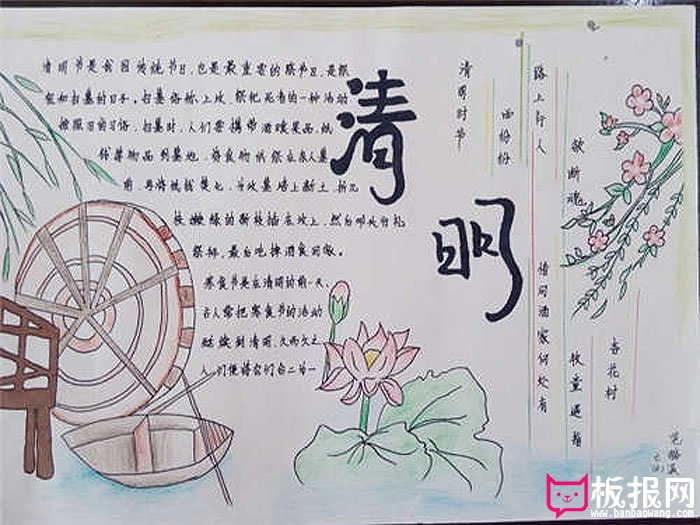 清明节是我国传统节日,也是最重要的祭节日,是祭
祖和扫墓的日子。扫墓俗称上坟,祭祀死者的一种活动
按照习俗,扫墓时,人们要携带酒食果品,纸
钱等物品到墓地,将食物供祭在亲人墓
前,再将纸钱焚化,为坟墓培上新土,折几
枝嫩绿的新枝插在坟上,然后叩头行礼
祭拜,最后吃掉酒食回家。
寒食节是在清明的前一天、
古人常把寒食节的活动
延续到清明,久而久之,
人们便将它们合二为一
清
明
清明时节
雨纷纷
路上行人
欲断魂
借问酒家何处有
牧童遥指
杏花村
板报网
www.banbaowang.com